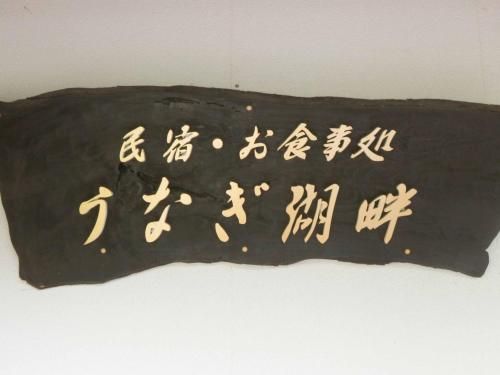 民宿・お食事処
うなぎ湖畔